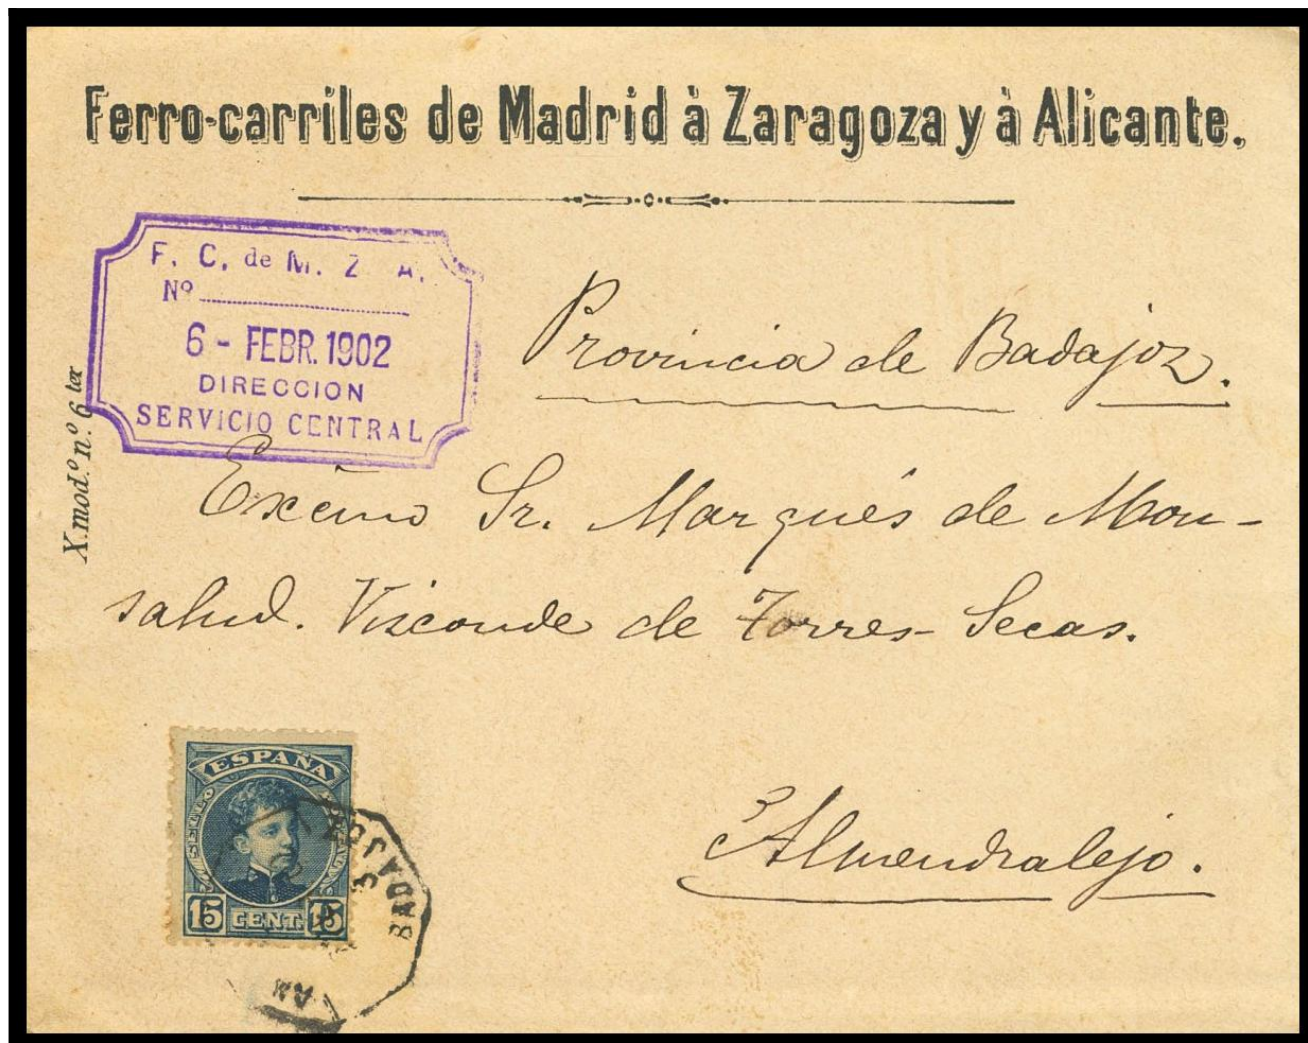 Ferro-carriles de Madrid à Zaragoza y à Alicante.
F. C. de M. Z. A.
Nº
6 - FEBR. 1902
DIRECCION
SERVICIO CENTRAL
X. mod.º n.º 6 ter
Provincia de Badajoz.
Excmo Sr. Marqués de Mon-
salud. Vizconde de Torres-Secas.
Almendralejo.
ESPAÑA
15 CENT. 15
BADAJOZ